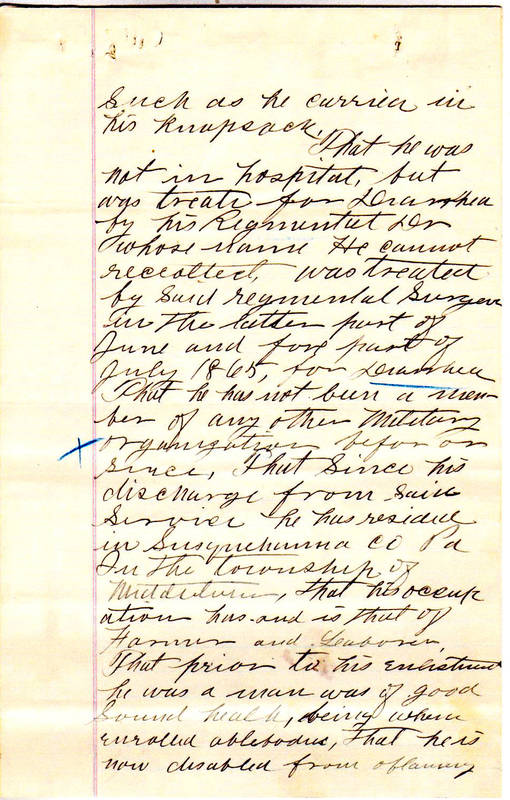 Such as he carried in
his Knapsack.
That he was
not in hospital, but
was treate for Diarrhea
by his Regmental Dr
whose name He cannot
recolled was treated
by Said regmental Surgeon
in the latter part of
June and fore part of
July 1865, for Diarrhea
That he has not been a mem-
ber of any other Military
organization befor or
since, That Since his
discharge from Said
Service he has resided
in Susquehanna Co Pa
In the township of
Middletown, that his occup
ation has and is that of
Farmer and Laborer,
That prior to his enlistment
he was a man was of good
Sound health, being when
enrolled ablebodied, That he is
now disabled from